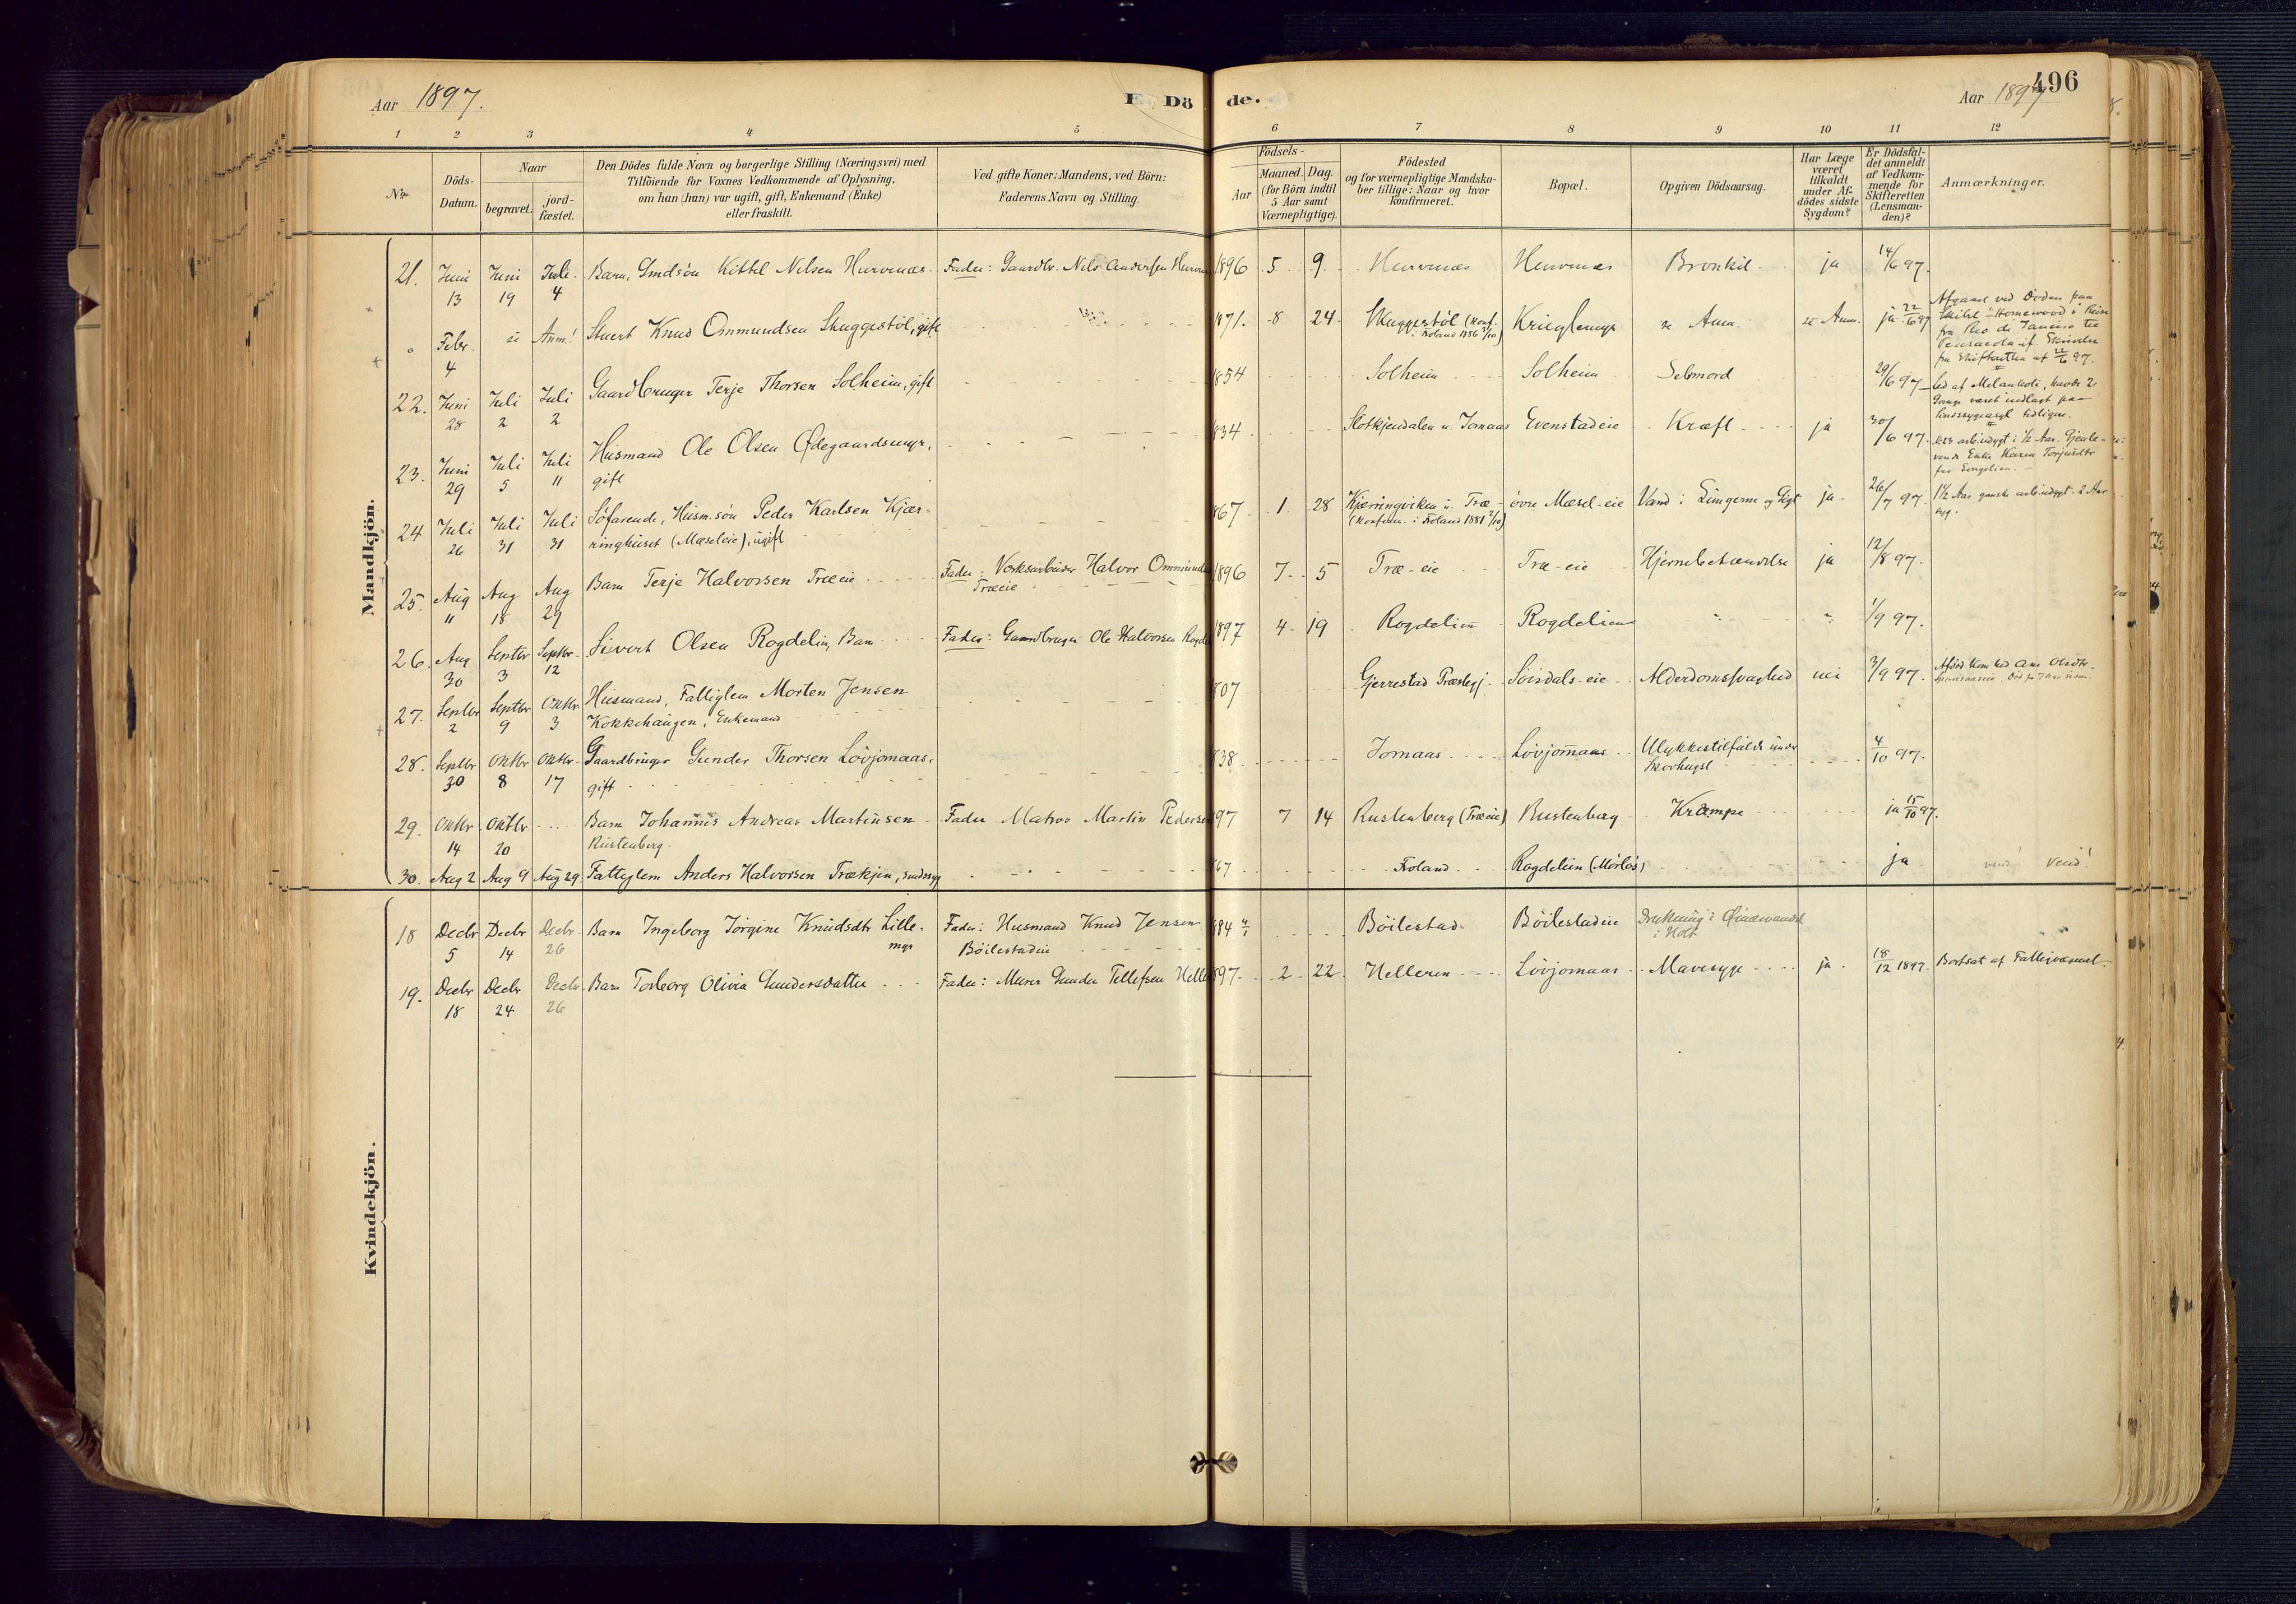 Aar 1897.
E. Dö
de.
Aar 1897
496
1 2 3 4 5 6 7 8 9 10 11 12
No
Döds-Datum.
Naar
begravet.
jord-fæstet.
Den Dödes fulde Navn og borgerlige Stilling (Næringsvei) med
Tilföiende for Voxnes Vedkommende af Oplysning,
om han (hun) var ugift, gift, Enkemand (Enke)
eller fraskilt.
Ved gifte Koner: Mandens, ved Börn:
Faderens Navn og Stilling.
Födsels-
Aar
Maaned. Dag.
(for Börn indtil
5 Aar samt
Værnepligtige).
Födested
og for værnepligtige Mandska-
ber tillige: Naar og hvor
konfirmeret.
Bopæl.
Opgiven Dödsaarsag.
Har Læge
været
tilkaldt
under Af-
dödes sidste
Sygdom?
Er Dödsfal-
det anmeldt
af Vedkom-
mende for
Skifteretten
(Lensman-
den)?
Anmærkninger.
Mandkjön.
21. Juni 13 Juni 19 Juli 4 Barn, Kittel Nilsen Hurvenæs Fader: Gaardbr. Nils Andersen 1896 5 9 Hurvenæs Hurvenæs Bronkit ja 14/6 97.
Febr. 4 se Anm! Stuert Knud Ommundsen Skuggestöl, gift 1871. 8 24 Skuggestöl (Konf. i Froland 1886 3/10) Krieglemyr se Anm. se Anm. ja 22/6 97
Afgaaet ved Döden paa
Skibet Homewood i Reise
fra Rio di Janeiro til
Pensacola
fra Skifteretten af 22/6 97.
22. Juni 28 Juli 2 Juli 2 Gaardbruger Terje Thorsen Solheim, gift 1854 Solheim Solheim Selvmord 29/6 97
Led af Melankoli, havde 2
Gange været indlagt paa
Sindssygeasyl tidligere.
23. Juni 29 Juli 5 Juli 11 Husmand Ole Olsen Ødegaardsmyr, gift 834 Slotkjendalen u. Jomaas Evenstadeie Kræft ja 30/6 97.
i 1/2 Aar. Gjenle-
vende Enke Karen Torjusdtr
fra Singelien.
24 Juli 26 Juli 31 Juli 31 Söfarende, Husm.sön Peder Karlsen Kjær-
ringhuset (Mæseleie), ugift 867 1 28 Kjærringviken u. Træ (Konfirm. i Froland 1881 2/10) övre Mæsel-eie Vand i Lungerne og Gigt ja 26/7 97.
1 1/2 Aar ganske arb.udygt. 2 Aar
syg.
25. Aug 11 Aug 18 Aug 29 Barn Terje Halvorsen Træeie Fader: Verksarbeider Halvor Ommundsen
Træeie 1896 7 5 Træ-eie Træ-eie Hjernebetændelse ja 12/8 97.
26. Aug 30 Septbr 3 Septbr 12 Sivert Olsen Rogdelin, Barn Fader: Gaardbruger Ole Halvorsen 1897 4 19 Rogdelien Rogdelien " " 1/9 97.
27. Septbr 2 Septbr 9 Oktbr 3 Husmand, Fattiglem Morten Jensen
Kokkehaugen, Enkemand 807 Gjerrestad Præstegj. Söisdals-eie Alderdomssvaghed nei 3/9 97.
28. Septbr 30 Oktbr 8 Oktbr 17 Gaardbruger Gunder Thorsen Lövjomaas,
gift 838 Jomaas Lövjomaas Ulykkestilfælde under
Skovhugst 4/10 97.
29. Oktbr 14 Oktbr 20 Barn Johannes Andreas Martinsen
Rustenberg Fader Matros Martin Pedersen 97 7 14 Rustenberg (Træeie) Rustenberg Krampe ja 15/10 97.
30. Aug 2 Aug 9 Aug 29. Fattiglem Anders Halvorsen Trækjen, sindssyg 67 Froland Rogdelien (Mörlös) ja vend! vend!
Kvindekjön.
18 Decbr 5 Decbr 14 Decbr 26 Barn Ingeborg Jörgine Knudsdtr Lille-
myr Fader: Husmand Knud Jensen
Böilestadeie 884 4/1 Böilestad Böilestadeie Drukning i
i Holt
19. Decbr 18 Decbr 24 Decbr 26 Barn Torborg Olivia Gundersdatter Fader: Murer Gunder Tellefsen 897 2 22 Helleren Lövjomaas Mavesyge ja 18/12 1897. Bortsat af Fattigvæsenet